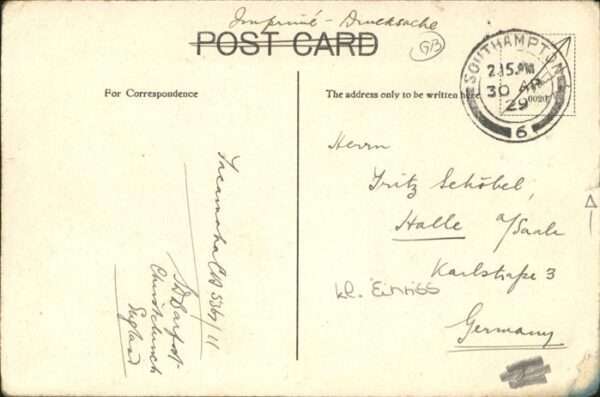 Imprimé - Drucksache
POST CARD
GB
SOUTHAMPTON
2.15 PM
30 AP
29
6
0020
For Correspondence
The address only to be written here
Herrn
Fritz Schöbel,
Halle a/Saale
Karlstraße 3
Germany
kl. Einriss
Christchurch
England